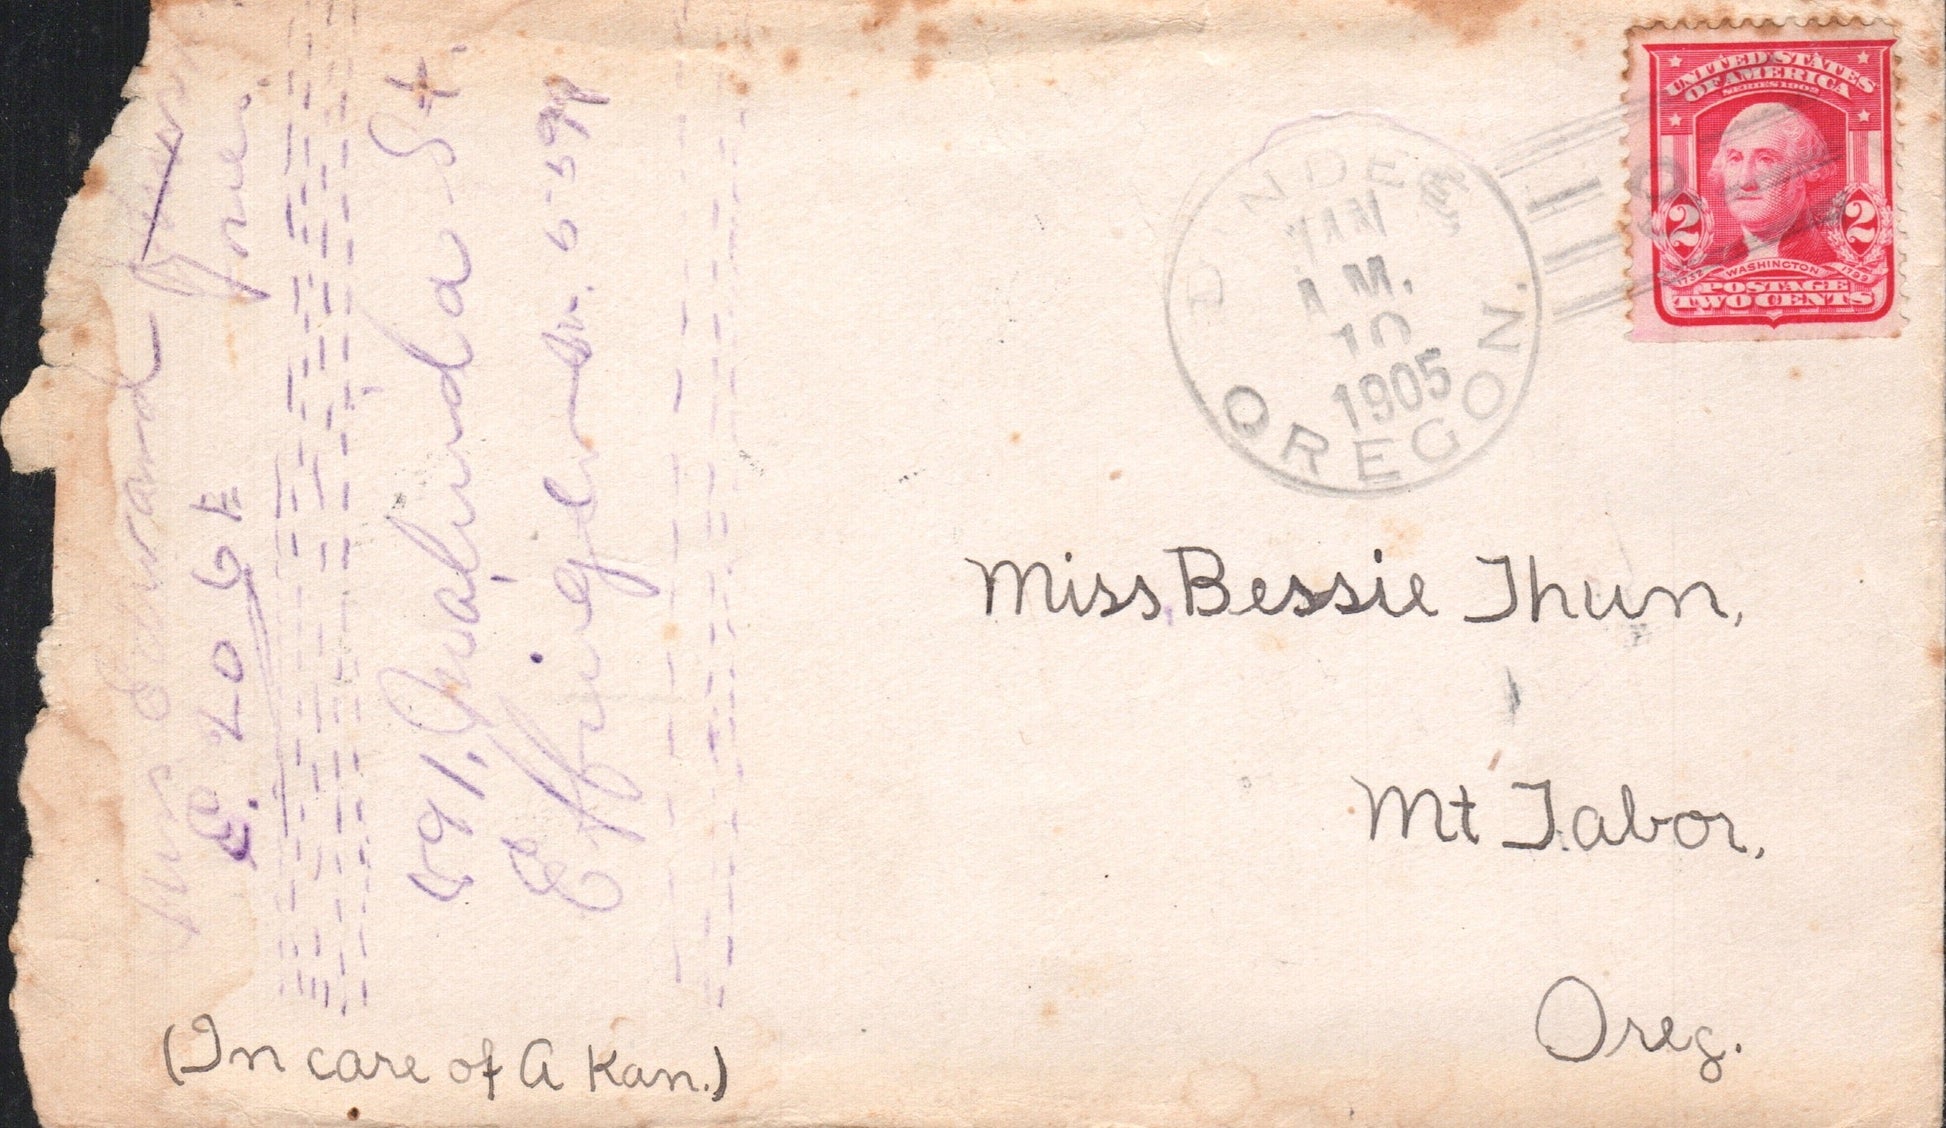 UNITED STATES
OF AMERICA
SERIES 1902
2 2
1732 WASHINGTON 1799
POSTAGE
TWO CENTS
DUNDEE
JAN
A.M.
10
1905
OREGON.
Miss Bessie Thun,
Mt Tabor,
Oreg.
(In care of A Kan.)
E. 20
591. Malinda St.
Effinger